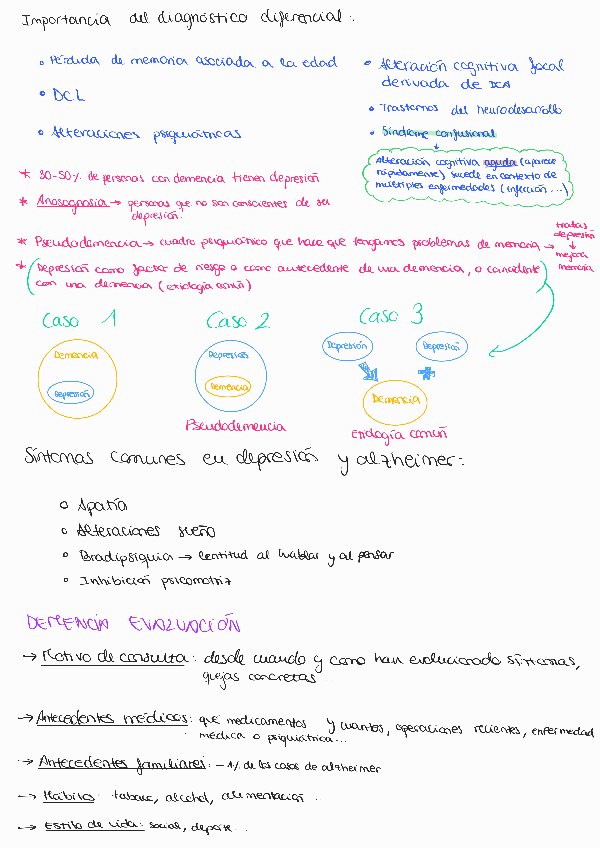 Importancia del diagnóstico diferencial:
• Pérdida de memoria asociada a la edad
• DCL
• Alteraciones psiquiátricas
• Alteración cognitiva focal
derivada de DCA
• Trastornos del neurodesarollo
• Síndrome confusional
↓
Alteración cognitiva aguda (aparece
rápidamente) sucede en contexto de
múltiples enfermedades (infección ...)
* 30-50% de personas con demencia tienen depresión
* Anosognosia → personas que no son conscientes de su
depresión.
* Pseudodemencia → cuadro psiquiátrico que hace que tengamos problemas de memoria →
tratas
depresión
↓
mejora
memoria
* (Depresión como factor de riesgo o como antecedente de una demencia, o coincidente
con una demencia (etiología común)
Caso 1
Demencia
Depresión
Caso 2
Depresión
Demencia
Pseudodemencia
Caso 3
Depresión
Depresión
Demencia
Etiología común
Síntomas comunes en depresión y alzheimer:
○ Apatía
○ Alteraciones sueño
○ Bradipsiquia → lentitud al hablar y al pensar
○ Inhibición psicomotriz
DEMENCIA EVALUACIÓN
→ Motivo de consulta: desde cuando y como han evolucionado síntomas,
quejas concretas
→ Antecedentes médicos: que medicamentos y cuantos, operaciones recientes, enfermedad
médica o psiquiátrica...
→ Antecedentes familiares: -1% de los casos de alzheimer
→ Hábitos: tabaco, alcohol, alimentación.
→ Estilo de vida: social, deporte...